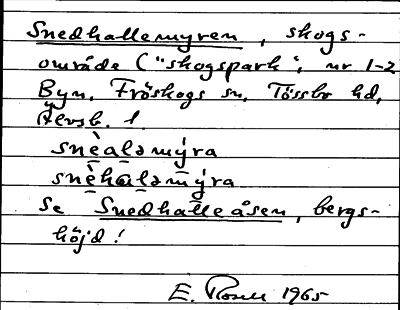 Snedhallemyren, skogs-
område ("skogspark", nr 1-2
Byn, Fröskogs sn, Tössbo hd,
Älvsb. l.
snèaləmy̆ra
snèhaləmy̆ra
Se Snedhalleåsen, bergs-
höjd!
E. Rosell 1965